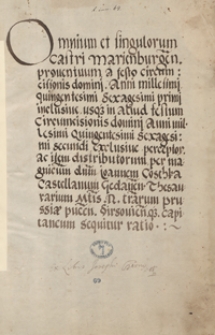 Omnium et singulorum
Castri Marienburgen.
proventuum a festo circum-
cisionis domini. Anni millesimi
Quingentesimi Sexagesimi primi
inclusiue usq; in aliud festum
Circumcisionis domini Anni mil-
lesimi Quingentesimi Sexagesi-
mi secundi exclusiue perceptor.
ac item distributorum per ma-
gnificum dnum Ioannem Costhka
Castellanum Gedanen Thesau-
rarium Mtis R. trarum prus-
siæ pucen. Dirsouien. q; capi-
taneum sequitur ratio